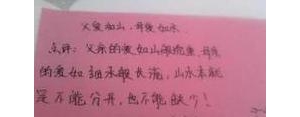 父爱如山,母爱如水
点评:父亲的爱如山般稳重,母亲
的爱如细水般长流,山水本能
是不能分开,也不能缺少!